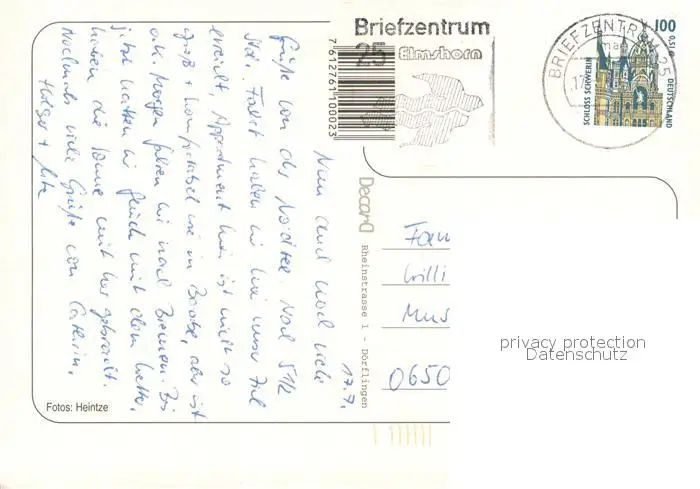 Briefzentrum
25 Elmshorn
BRIEFZENTRUM 25
100
0,51 €
SCHLOSS SCHWERIN
DEUTSCHLAND
7612761100023
17.7.
Nun auch noch viele
Grüße von der Nordsee. Nach 5 1/2
Std. Fahrt haben wir hier unser Ziel
erreicht. Appartment hier ist nicht so
groß + komfortabel wie in Baabe, aber ist
ok. Morgen fahren wir nach Bremen. Bis
jetzt hatten wir Glück mit dem Wetter,
haben die Sonne mit her gebracht.
Nochmals viele Grüße von Cathrin,
Holger +
DecarA
Rheinstrasse 1 - Dörflingen
Fam
Willi
Mus
0650
privacy protection
Datenschutz
Fotos: Heintze